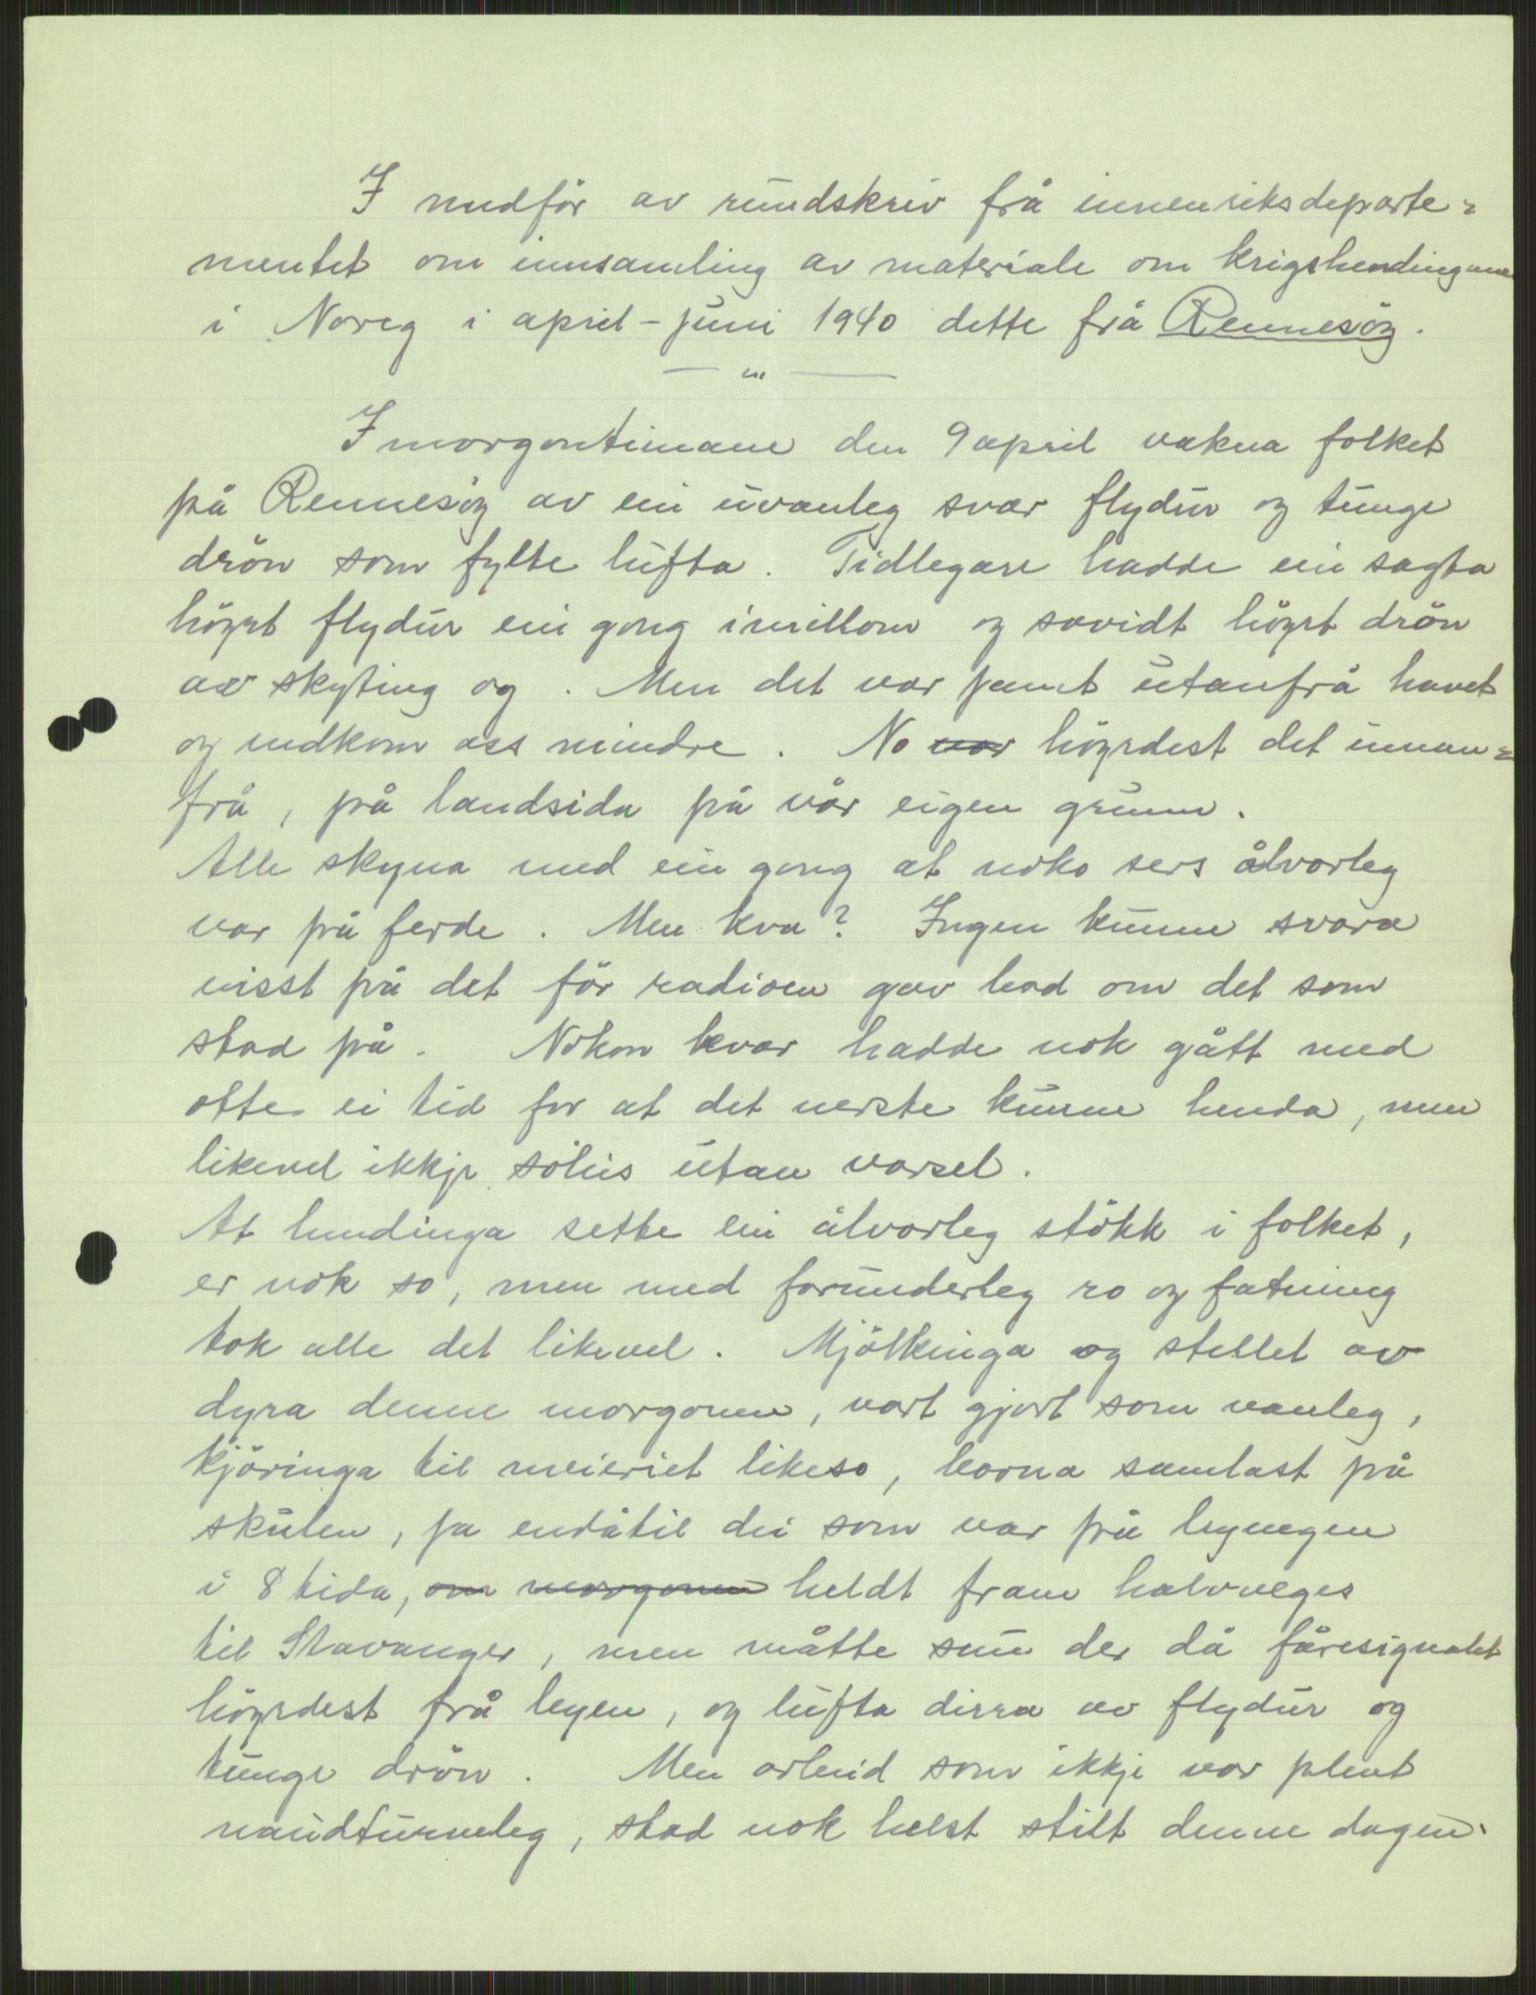 I medför av rundskriv frå innenriksdeparte=
mentet om innsamling av materiale om krigshendingane
i Noreg i april-juni 1940 dette frå Rennesöy.
— " —
I morgontimane den 9 april vakna folket
på Rennesöy av ein uvanleg svær flydur og tunge
drön som fylte lufta. Tidlegare hadde ein sagta
höyrt flydur ein gong imillom og sovidt höyrt drön
av skyting og. Men det var jamt utanfrå havet
og vedkom oss mindre. No var höyrdest det innan=
frå, på landsida på vår eigen grunn.
Alle skyna med ein gong at noko sers ålvorleg
var på ferde. Men kva? Ingen kunne svara
visst på det för radioen gav bod om det som
stod på. Nokon kvar hadde nok gått med
otte ei tid for at det verste kunne henda, men
likevel ikkje sölis utan varsel.
At hendinga sette ein ålvorleg stökk i folket,
er nok so, men med forunderleg ro og fatning
tok alle det likevel. Mjölkinga og stellet av
dyra denne morgonen, vart gjort som vanleg,
kjöringa til meieriet likeso, borna samlast på
skulen, ja endåtil dei som var på byvegen
i 8 tida, om morgonen heldt fram halvveges
til Stavanger, men måtte snu der då fåresignalet
höyrdest frå byen, og lufta dirra av flydur og
tunge drön. Men arbeid som ikkje var plent
naudturveleg, stod nok helst stilt denne dagen.